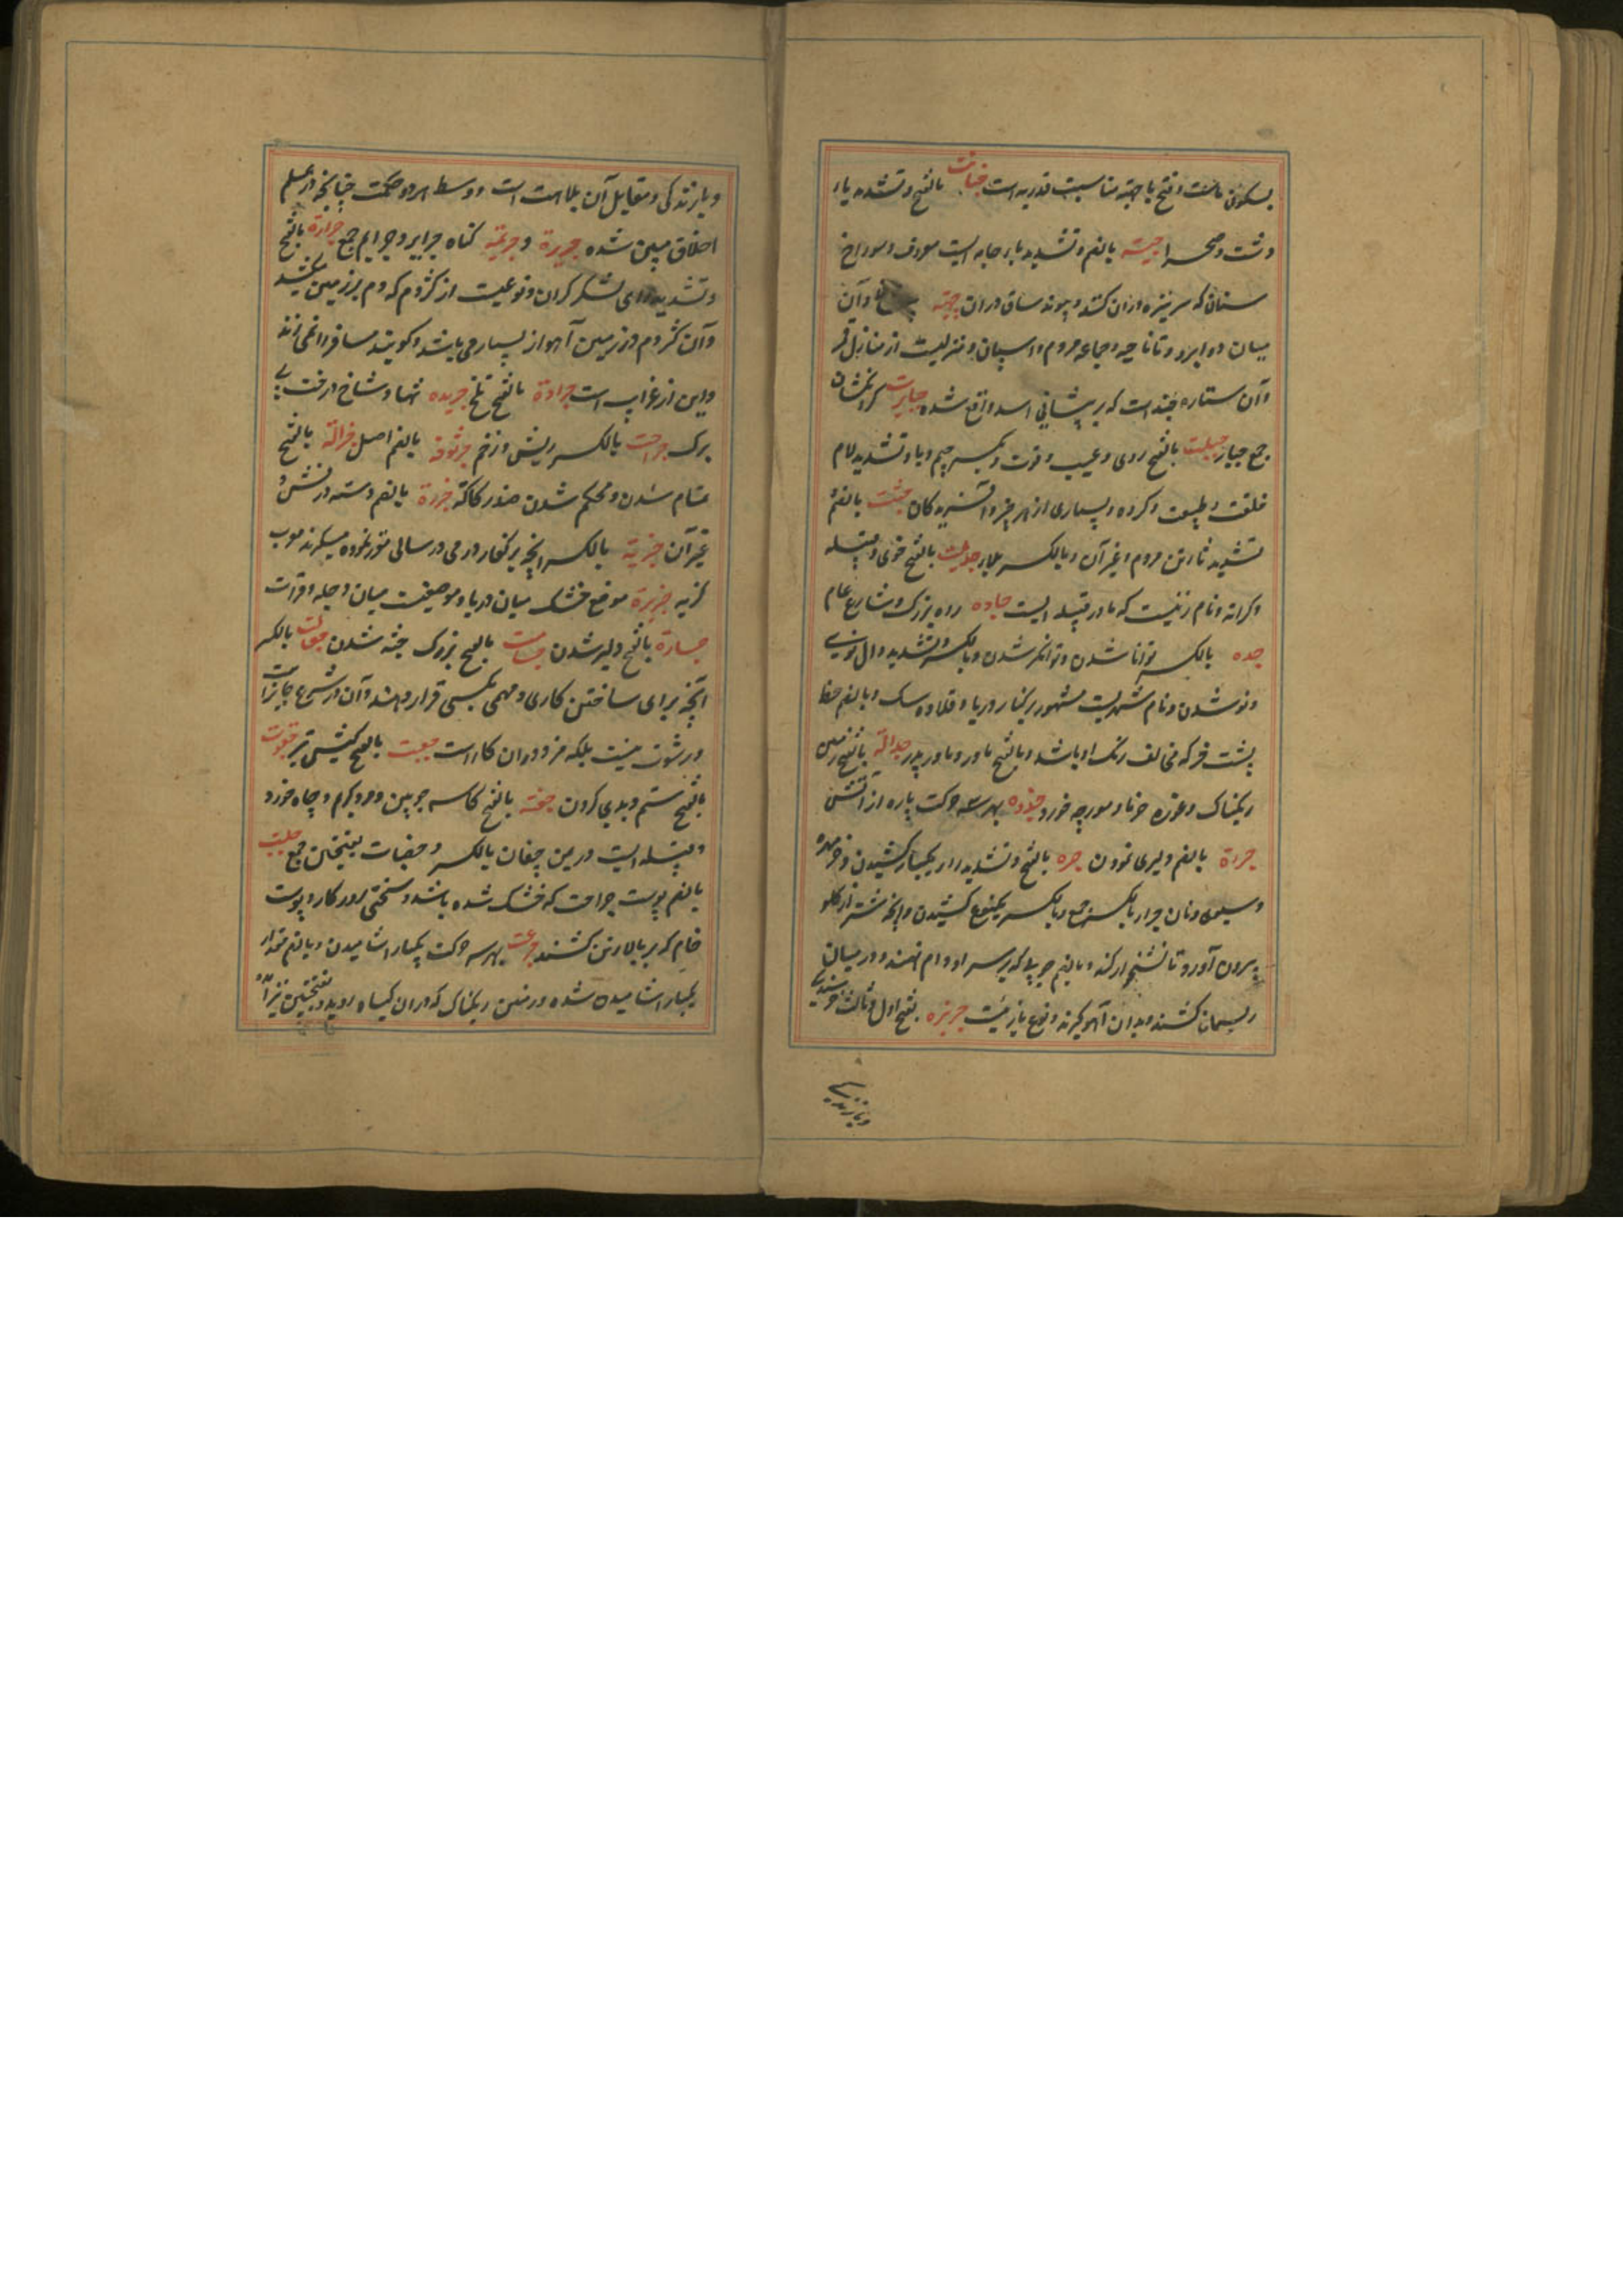 بسکون ماست و فتح با جبته مناسبت قدریه است جبانت بالفتح و تشدید باء
دشت و صحرا جبته بالضم و تشدید باء جامه ایست معروف و سوراخ
سنان که سر نیزه در ان کنند و پیوند ساق در ان جبهته و آن
میان دو ابرو و تا ناحیه و جماعه مردم و اسپان و منزلیست از منازل قمر
و آن ستاره چند است که بر پیشانی اسد واقع شده جبابرت گردنکشان
جمع جبار جبلت بالفتح روی و عیب و قوت و بکسر جیم و با و تشدید لام
خلقت و طبیعت و گروه و بسیاری از هر چیز و آفریدگان جثت بالضم و
تشدید ثا تن مردم و غیر آن و بالکسر بلا بالفتح قوی و قبیله
و کرانه و نام زنیست که مادر قبیله ایست جاده راه بزرگ و شارع عام
جده بالکسر توانا شدن و توانگر شدن و بالکسر و تشدید دال نوی
و نو شدن و نام شهریست مشهور بر کنار دریا و قلاده سک و بالضم خط
پشت خر که مخالف رنگ او باشد و بالفتح مادر و مادر پدر جدالة بالفتح زمین
ریگناک و غوره خرما و مورچه خورد جذوه بهر سه حرکت پاره از آتش
جرءة بالضم دلیری نمودن جره بالفتح و تشدید راء یکبار کشیدن و خرمهره
و سبوی و نان جرار بالکسر جمع و بالکسر یکنوع کشیدن و آنچه شتر از گلو
بیرون آورد تا نشخوار کند و بالضم چوبیکه بر سر او دام نهند و در میان
ریسمان کشند و بدان آهو گیرند و نوع بازیست جربزه بفتح اول و ثالث خرسندی
و بازندگی
و بازندگی و مقابل آن بلاهت است و وسط هر دو حکمت چنانچه در علم
اخلاق مبین شده جریرة و جریمة گناه جرایر و جرایم جمع جرارة بالفتح
و تشدید رای لشکر گران و نوعیست از کژدم که دم بر زمین کشد
و آن کژدم در زمین اهواز بسیار می باشد و گویند مسافر را نمی زند
و این از غرایب است جرادة بالفتح ملخ جریده تنها و شاخ درخت بی
برگ جراحت بالکسر ریش و زخم جرثومة بالضم اصل جزالة بالفتح
تمام شدن و محکم شدن ضد رکاکة جزرة بالضم دسته درفش و
غیر آن جزیة بالکسر آنچه بر کفار در می در سالی مقرر نموده میگیرند معرب
گزیه جزیرة موضع خشک میان دریا و موضعیست میان دجله و فرات
جسارة بالفتح دلیر شدن جسامت بالفتح بزرگ جثه شدن جعالت بالکسر
آنچه برای ساختن کاری و مهمی بکسی قرار دهند و آن در شرع جایز است
و رشوت نیست بلکه مزدوران کار است جعبت بالفتح کیش تیر جفوت
بالفتح ستم و بدی کردن جفنه بالفتح کاسه چوبین و مرد کریم و چاه خورد
و قبیله ایست در یمن جفان بالکسر و جفنات بفتحتین جمع جلبت
بالضم پوست جراحت که خشک شده باشد و سختی روزگار و پوست
خام که بر پالان کشند جرعت بهر سه حرکت یکبار آشامیدن و بالضم مقدار
یکبار آشامیدن شده و زمین ریگناک که در ان گیاه روید و بفتحتین نیز آمده